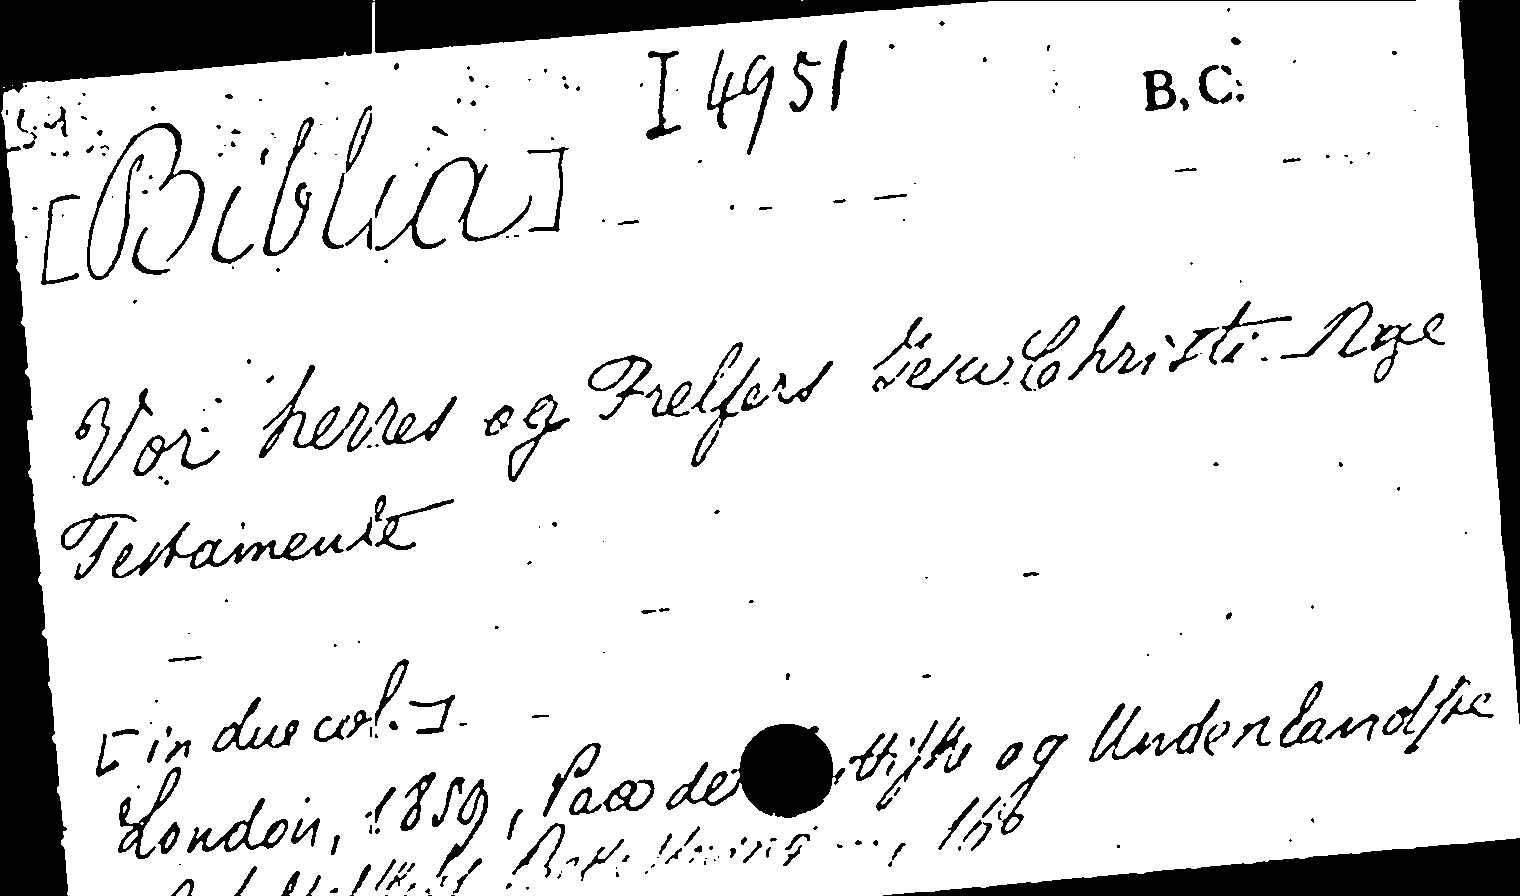 I 4951
B.C.
[Biblia]
Vor herres og Frelsers Jesu Christi Nye
Testamente
[in due col.]
London, 1859, Paa de og Udenlandske